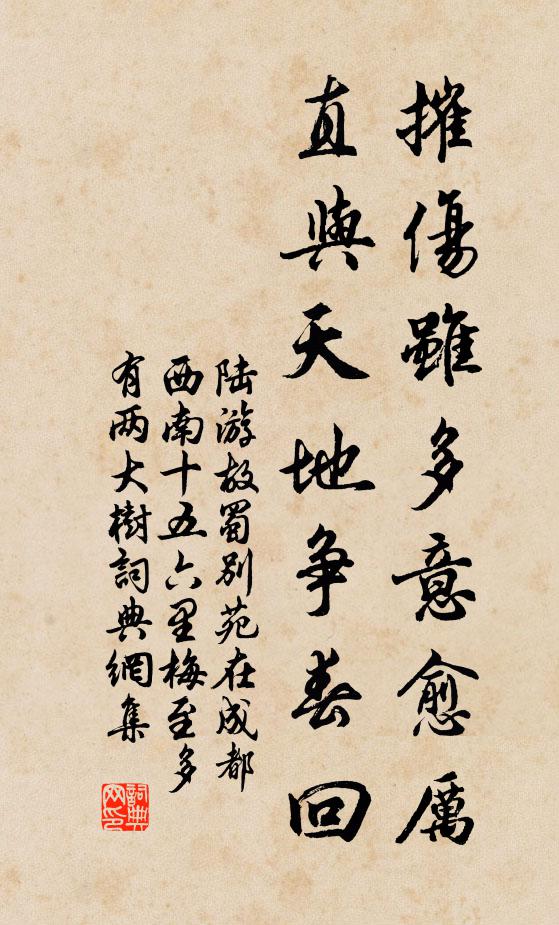 摧傷雖多意愈厲
直與天地争春回
陆游故蜀别苑在成都
西南十五六里梅至多
有两大樹詞典網集
詞典网印